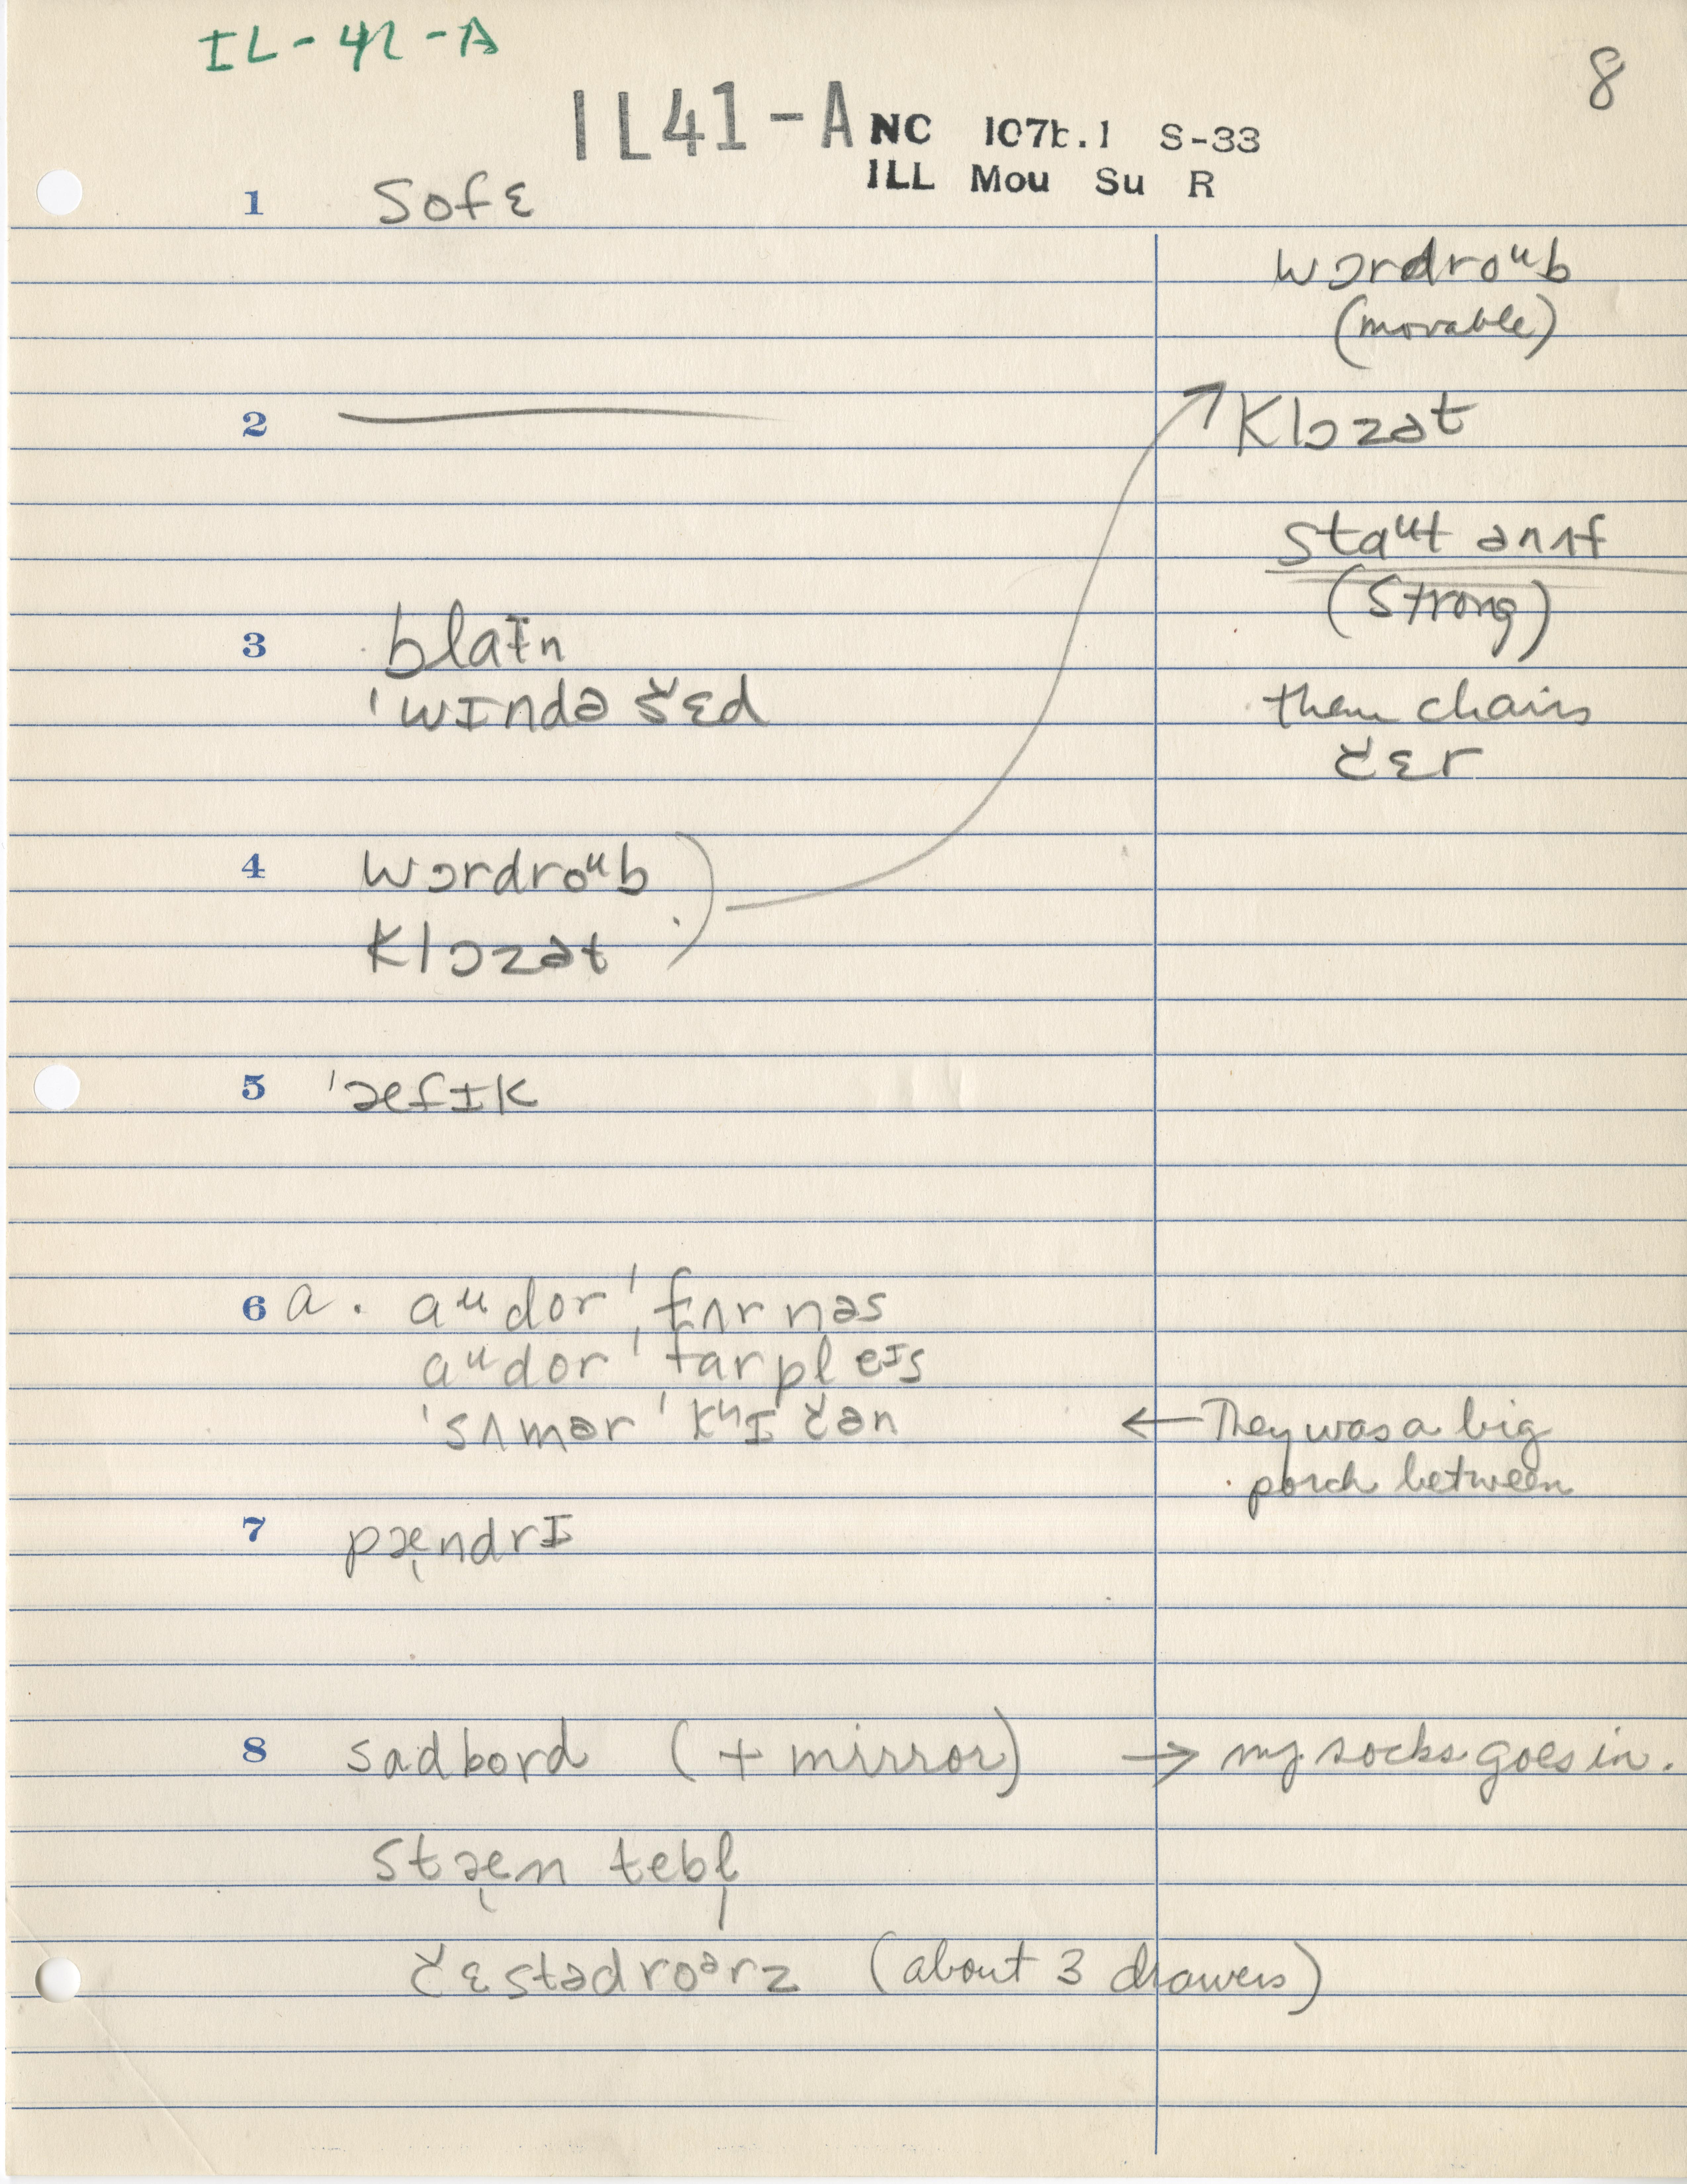 IL-42-A
8
IL41-A NC 107b.1 S-33
ILL Mou Su R
1 sofɛ
wɔrdroᵘb
(movable)
2
klɔzət
staᵘt ənʌf
(strong)
3 blaɪn
ˈwɪndə šɛd
them chairs
čɛr
4 wɔrdroᵘb
klɔzət
5 ˈæfɪk
6 a. aᵘdor ˈfʌrnəs
aᵘdor ˈfarpleɪs
ˈsʌmər ˈkʰɪčən
← They was a big
porch between
7 pændrɪ
8 sadbord (+ mirror) → my socks goes in.
stæn tebl̩
čɛstədroᵊrz (about 3 drawers)